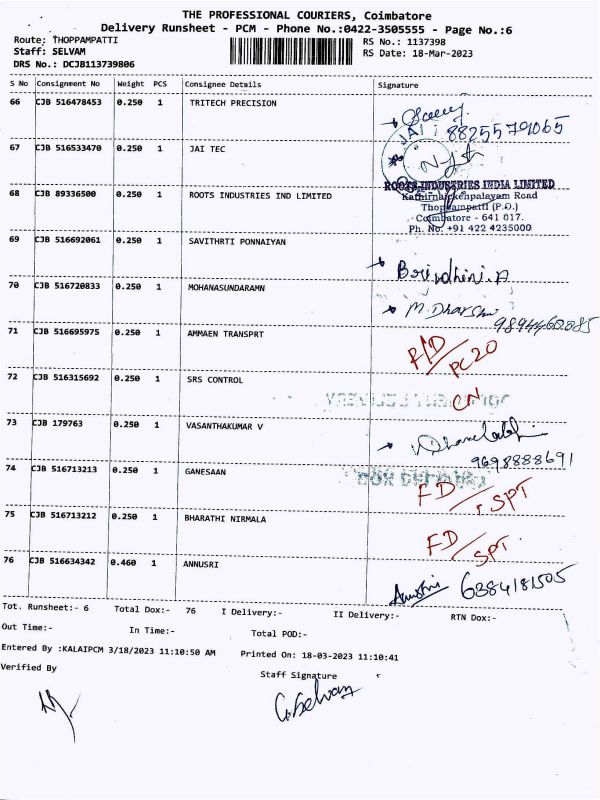 THE PROFESSIONAL COURIERS, Coimbatore
Delivery Runsheet - PCM - Phone No.:0422-3505555 - Page No.:6
Route: THOPPAMPATTI RS No.: 1137398
Staff: SELVAM RS Date: 18-Mar-2023
DRS No.: DCJB113739806
S No Consignment No Weight PCS Consignee Details Signature
66 CJB 516478453 0.250 1 TRITECH PRECISION
JAI 8825579065
67 CJB 516533470 0.250 1 JAI TEC
68 CJB 89336500 0.250 1 ROOTS INDUSTRIES IND LIMITED
ROOTS INDUSTRIES INDIA LIMITED
Kathirnaickenpalayam Road
Thoppampatti (P.O.)
Coimbatore - 641 017.
Ph. No. +91 422 4235000
69 CJB 516692061 0.250 1 SAVITHRTI PONNAIYAN
70 CJB 516720833 0.250 1 MOHANASUNDARAMN
M. Dharshu
71 CJB 516695975 0.250 1 AMMAEN TRANSPRT
R/D
PC20
72 CJB 516315692 0.250 1 SRS CONTROL
CN
73 CJB 179763 0.250 1 VASANTHAKUMAR V
9698888691
74 CJB 516713213 0.250 1 GANESAAN
FD/SPT
75 CJB 516713212 0.250 1 BHARATHI NIRMALA
FD/SPT
76 CJB 516634342 0.460 1 ANNUSRI
6384181505
Tot. Runsheet:- 6 Total Dox:- 76 I Delivery:- II Delivery:- RTN Dox:-
Out Time:- In Time:- Total POD:-
Entered By :KALAIPCM 3/18/2023 11:10:50 AM Printed On: 18-03-2023 11:10:41
Verified By Staff Signature
G. Selvam